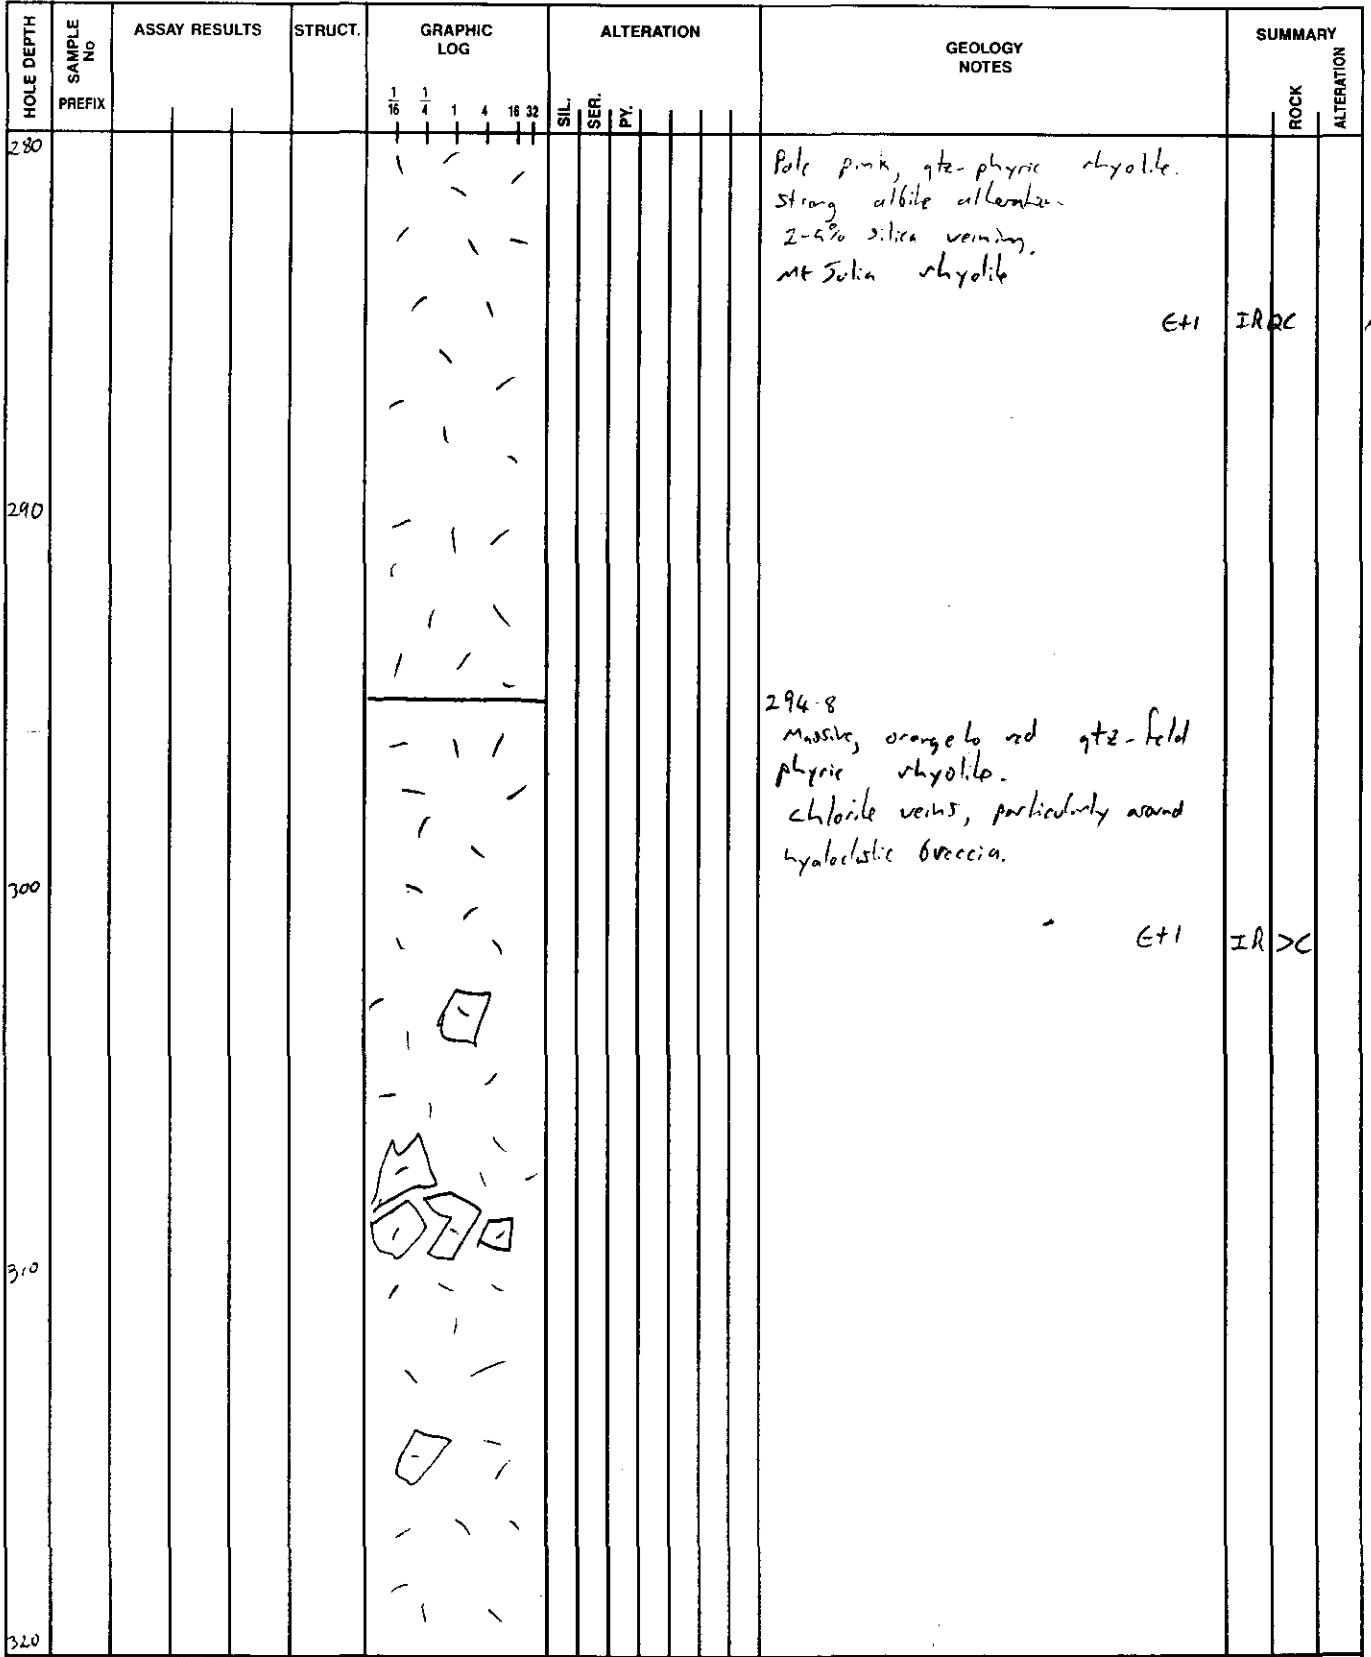 HOLE DEPTH
SAMPLE No
PREFIX
ASSAY RESULTS
STRUCT.
GRAPHIC
LOG
1/16 1/4 1 4 16 32
ALTERATION
SIL.
SER.
PY.
GEOLOGY
NOTES
SUMMARY
ROCK
ALTERATION
280
Pale pink, qtz-phyric rhyolite.
strong albite alteration
silica veining.
Mt Julia rhyolite
290
294.8
Massive, orange to red qtz-feld
phyric rhyolite.
chlorite veins, particularly around
hyaloclastic breccia.
300
IR >C
310
320